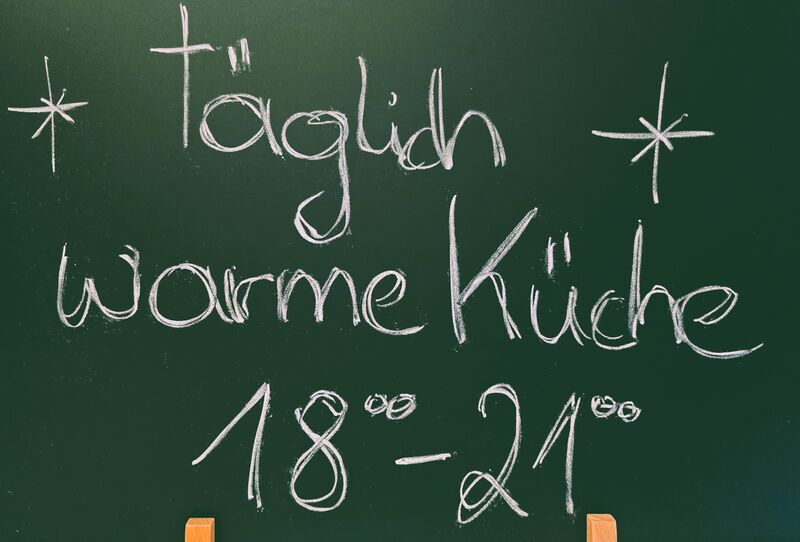 * täglich *
warme Küche
18⁰⁰ - 21⁰⁰